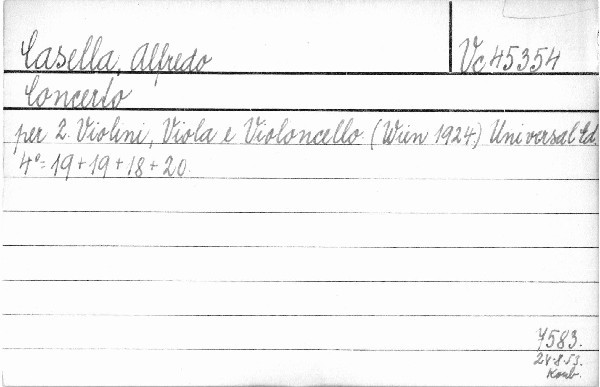 Casella, Alfredo
Vc 45354
Concerto
per 2 Violini, Viola e Violoncello (Wien 1924.) Universal Ed.
4°= 19+19+18+20.
7583.
24.8.53.